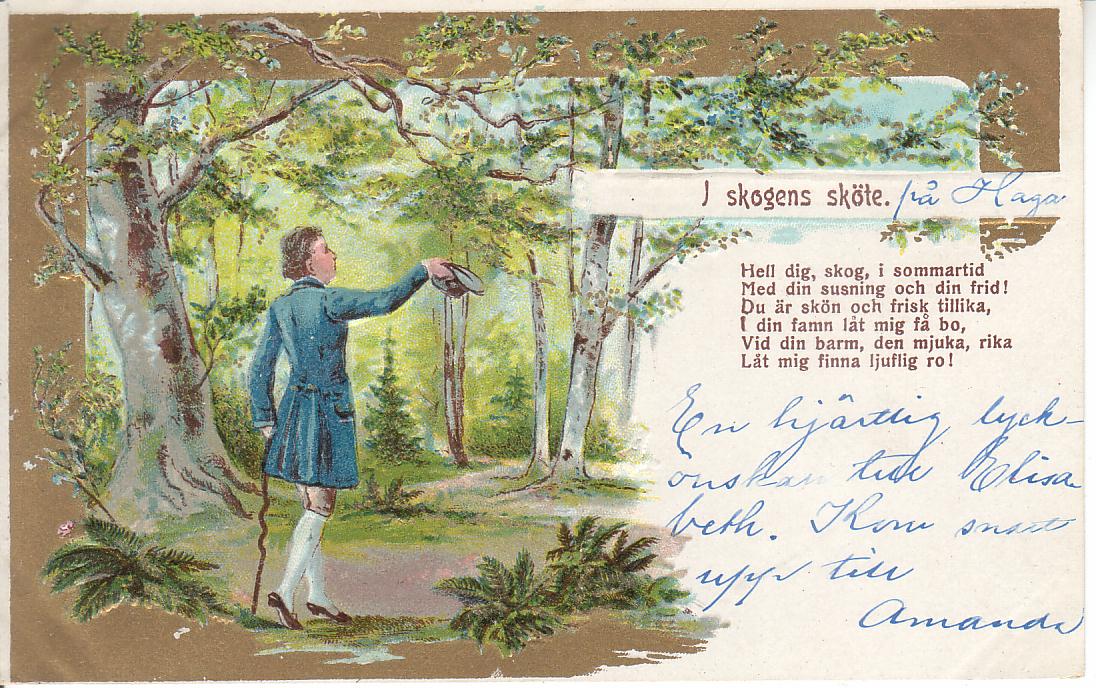 I skogens sköte. på Haga
Hell dig, skog, i sommartid
Med din susning och din frid!
Du är skön och frisk tillika,
I din famn låt mig få bo,
Vid din barm, den mjuka, rika
Låt mig finna ljuflig ro!
En hjärtlig lyck-
önskan till Elisa
beth. Kom snart
upp till
Amanda